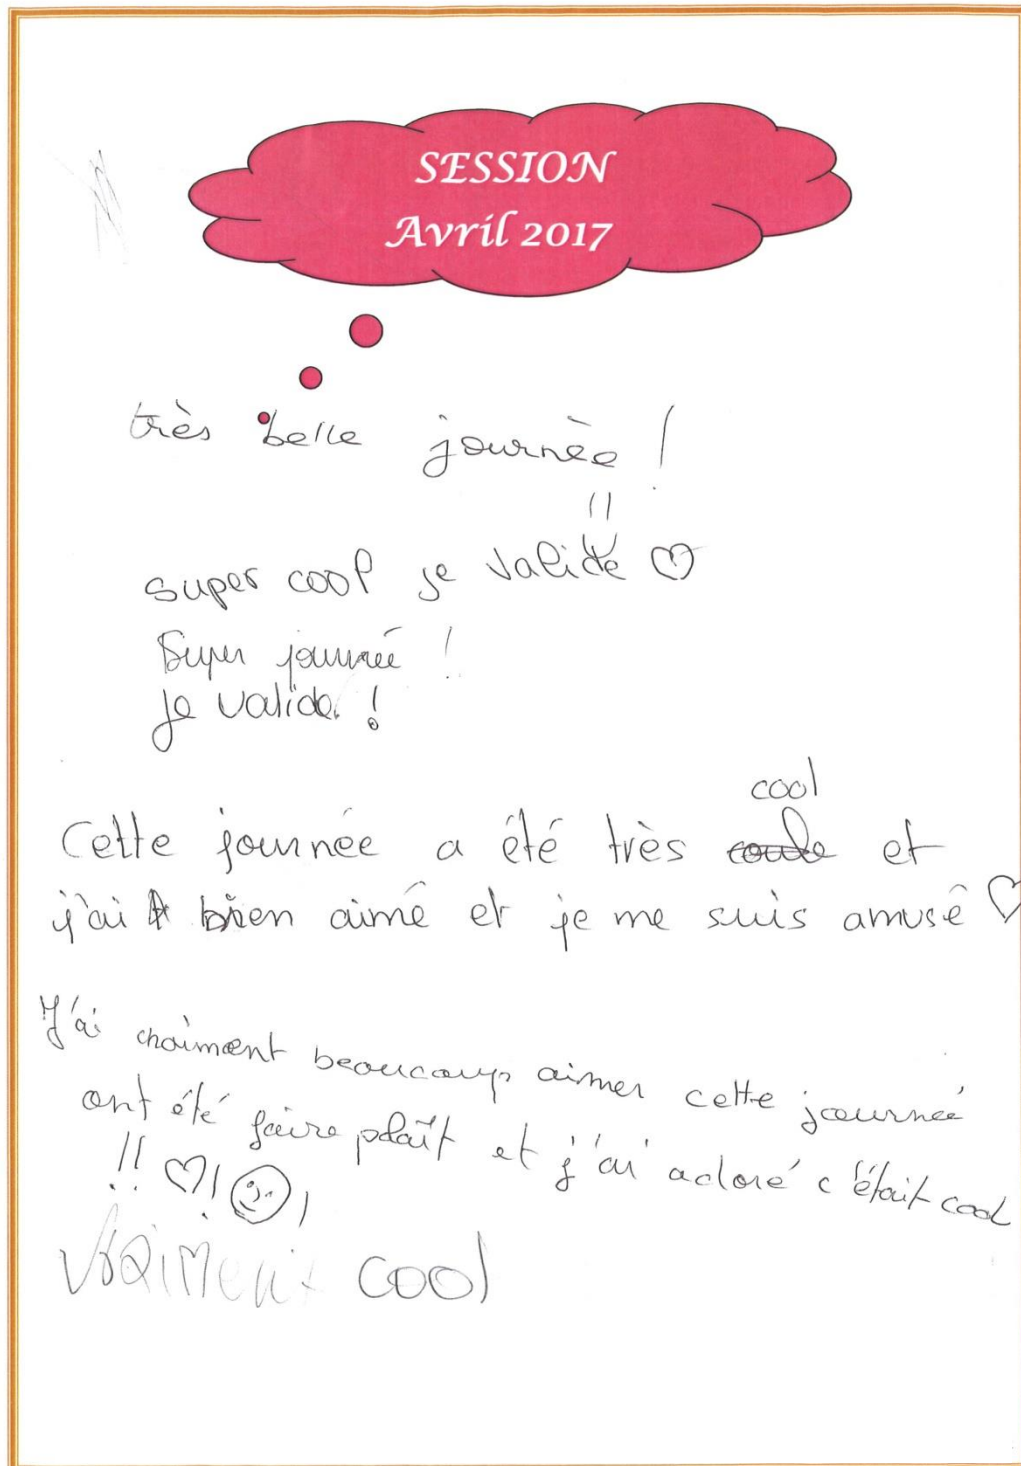 SESSION
Avril 2017
très belle journèe !
super cool je valide ♡ !!
Super journée !
Je valide !
cool
Cette journée a été très et
j'ai bien aimé et je me suis amusé ♡
J'ai beaucoup aimer cette journeé
ont été faire plaît et j'ai adoré c'était cool
!! ♡! ☺!
vraiment cool